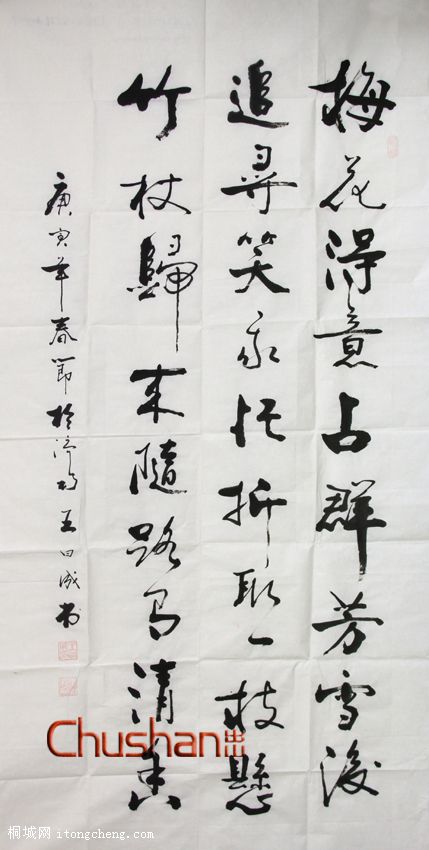 梅花得意占群芳雪後
追尋笑我忙折取一枝懸
竹杖歸來隨路有清香
庚寅年春節於 王日成书
Chushan
桐城网 itongcheng.com